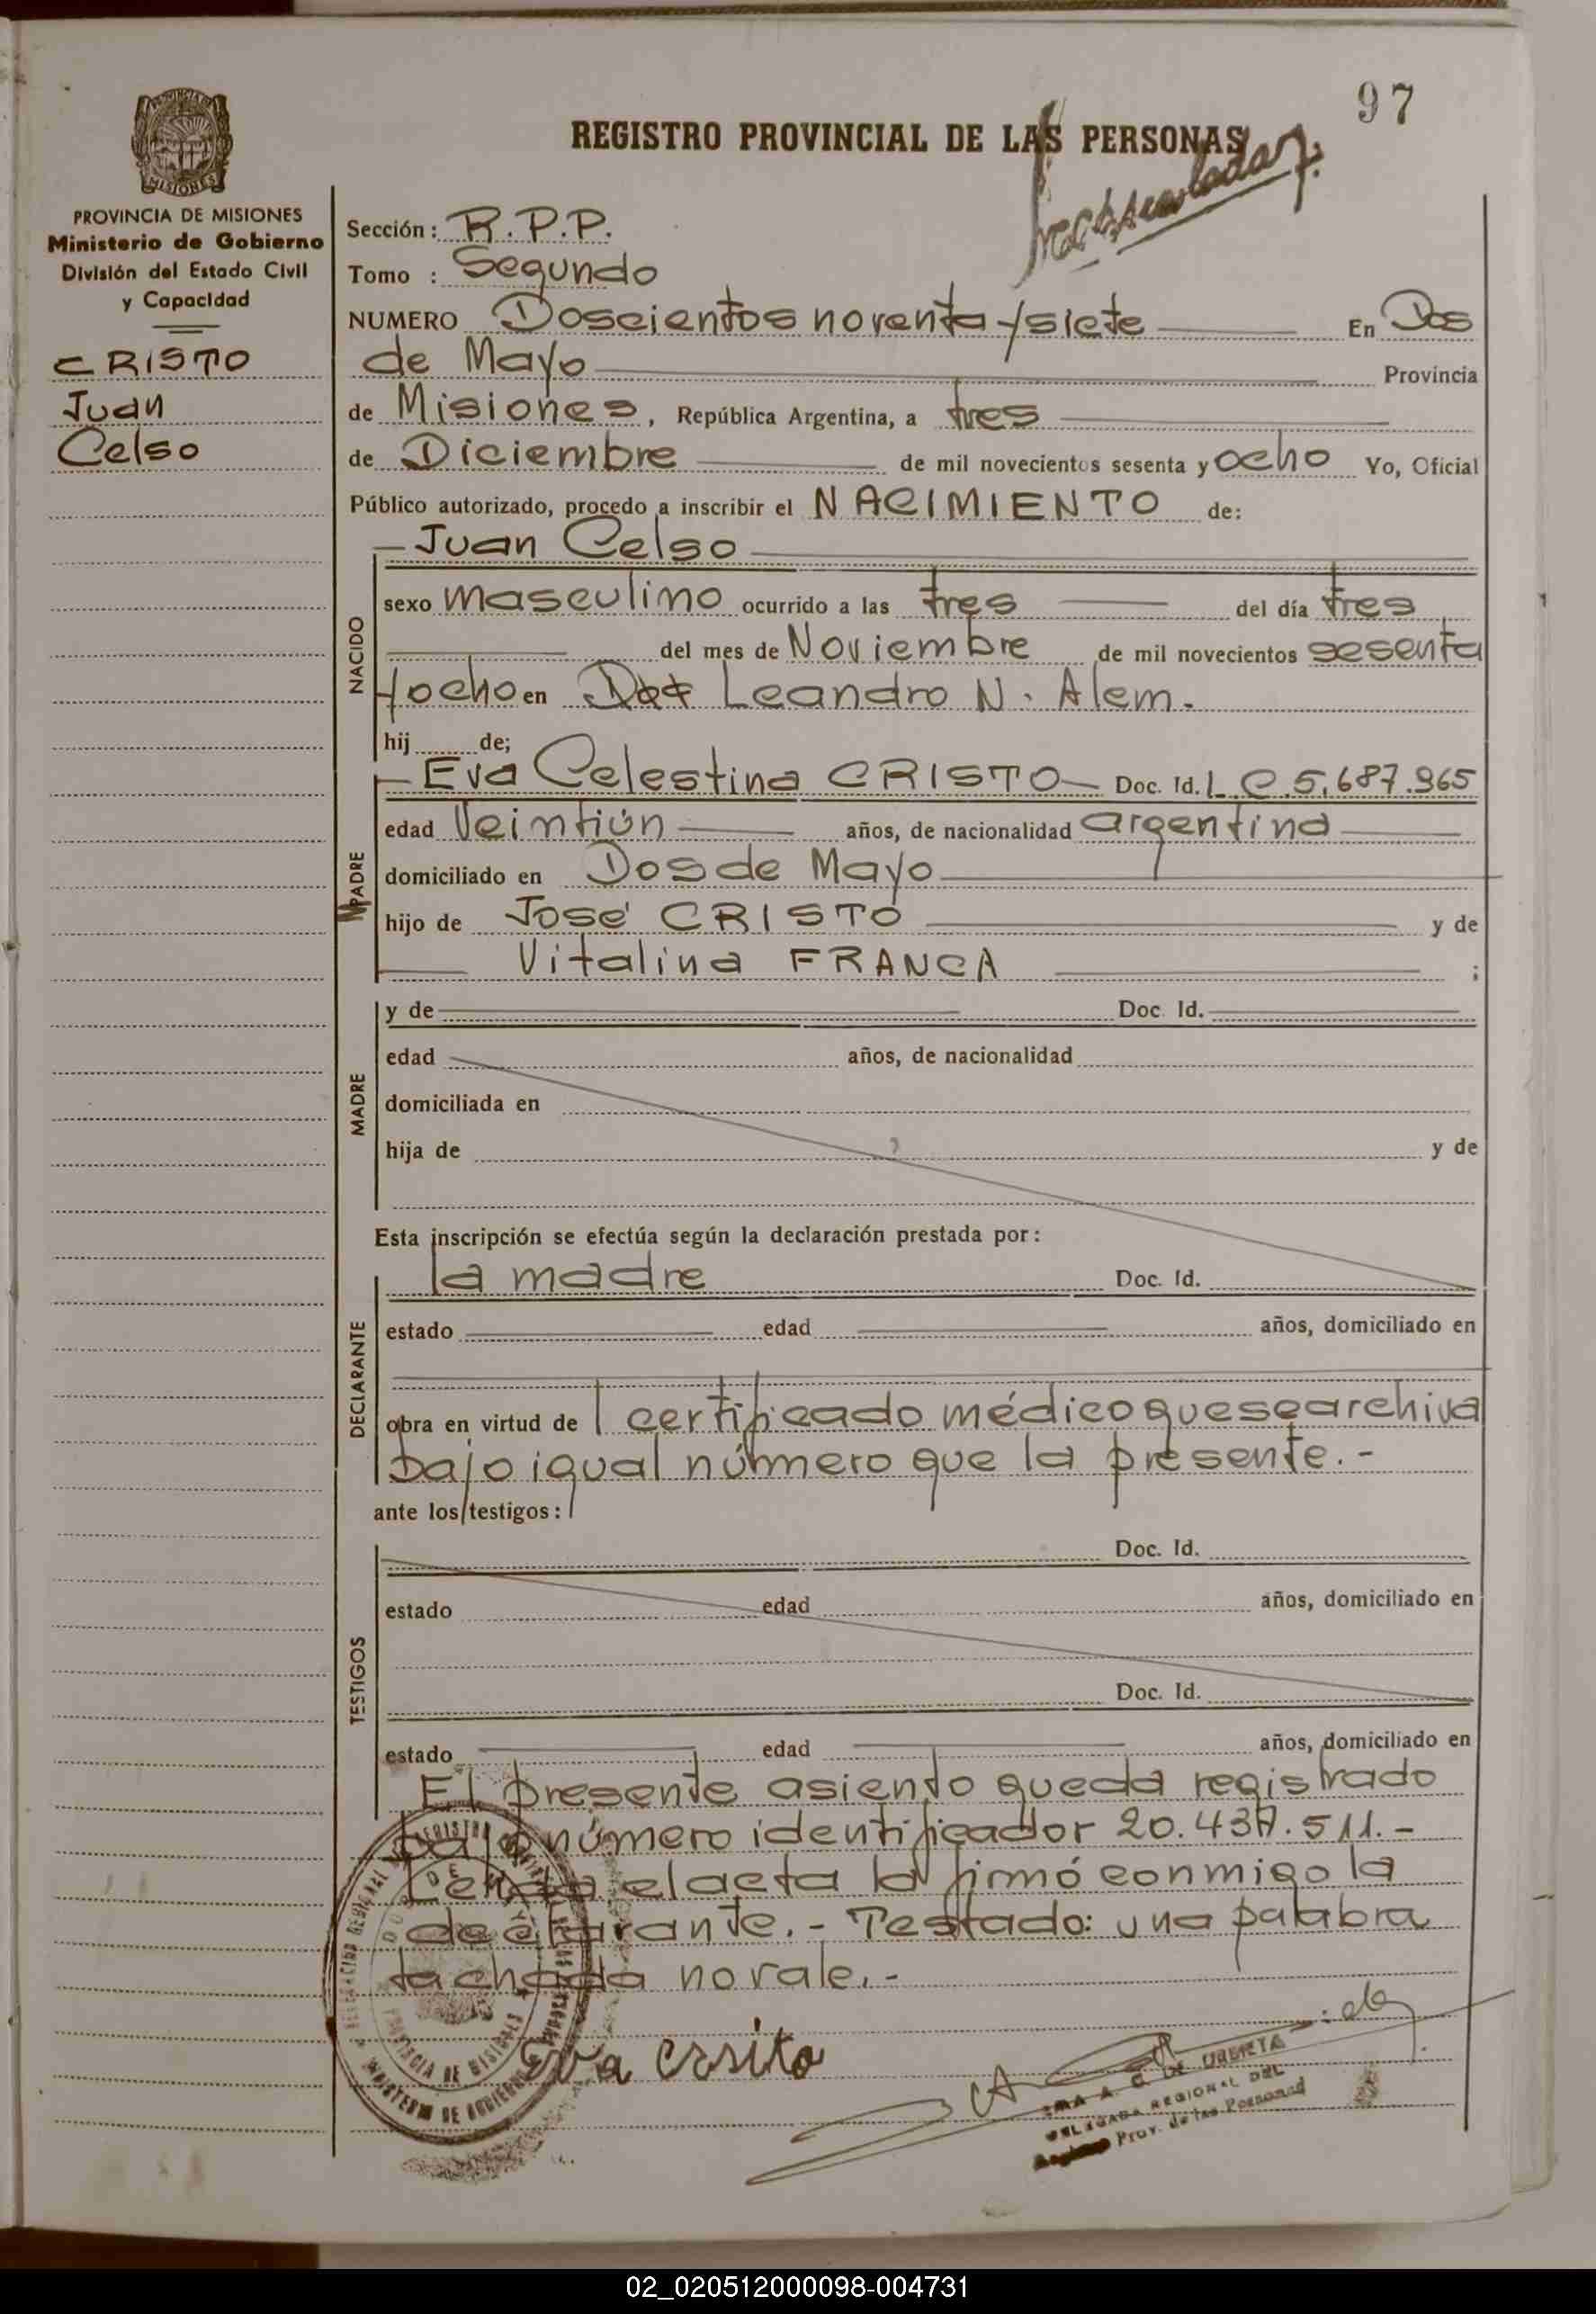 97
REGISTRO PROVINCIAL DE LAS PERSONAS
PROVINCIA DE MISIONES
Ministerio de Gobierno
División del Estado Civil
y Capacidad
CRISTO
Juan
Celso
Sección: R.P.P.
Tomo : Segundo
NUMERO Doscientos noventa y siete En Dos
de Mayo Provincia
de Misiones, República Argentina, a tres
de Diciembre de mil novecientos sesenta y ocho Yo, Oficial
Público autorizado, procedo a inscribir el NACIMIENTO de:
Juan Celso
NACIDO
sexo masculino ocurrido a las tres del día tres
del mes de Noviembre de mil novecientos sesenta
y ocho en Leandro N. Alem.
hij de;
Eva Celestina CRISTO Doc. Id. L.C. 5.687.965
MADRE
edad Veintiún años, de nacionalidad argentina
domiciliado en Dos de Mayo
hijo de José CRISTO y de
Vitalina FRANCA ;
MADRE
y de Doc. Id.
edad años, de nacionalidad
domiciliada en
hija de y de
Esta inscripción se efectúa según la declaración prestada por:
DECLARANTE
la madre Doc. Id.
estado edad años, domiciliado en
obra en virtud de 1 certificado médico que se archiva
bajo igual número que la presente.-
ante los testigos:
TESTIGOS
Doc. Id.
estado edad años, domiciliado en
Doc. Id.
estado edad años, domiciliado en
El presente asiento queda registrado
bajo número identificador 20.437.511.-
Leída el acta la firmó conmigo la
declarante.- Testado: una palabra
tachada no vale.-
Eva
DELEGADA REGIONAL DEL
Prov. de las Personas
PROVINCIA DE MISIONES
MINISTERIO DE GOBIERNO
02_020512000098-004731